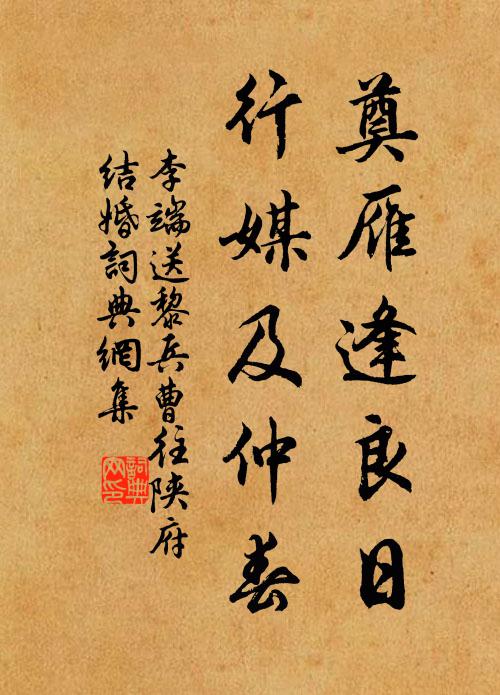 奠雁逢良日
行媒及仲春
李端送黎兵曹往陝府
結婚詞典網集
詞典
网印